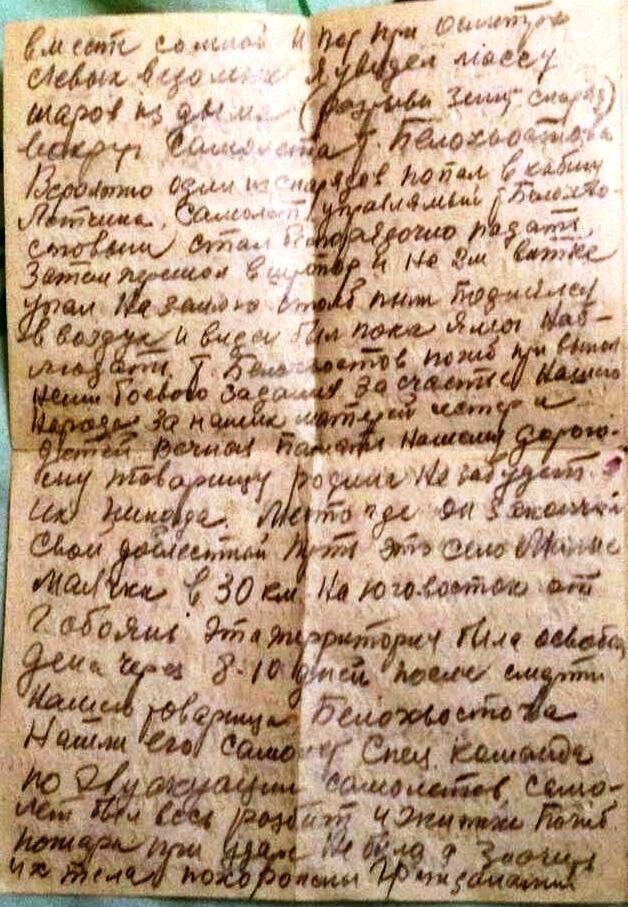 вместе со мной и
левых ведомых я увидел массу
шаров из дыма (разрывы зенит снаряд)
вокруг самолета т. Белохвостова
Вероятно один из снарядов попал в кабину
Летчика. Самолет управляемый т Белохво-
стовым стал беспорядочно падать.
Затем перешол в штопор и на 2м витке
упал на землю столб пыли поднялся
в воздух и виден был пока я мог наб-
людать. Т. Белохвостов погиб при выпол
нении боевого задания за счастье нашего
народа за наших матерей сестер и
детей. Вечная память нашему дорого-
му товарищу родина не забудет
их никогда. Место где он закончил
свой доблестный путь это село
Маячки в 30 км на юговосток от
г Обоянь Эта территория была освобож
дена через 8-10 дней после смерти
нашего товарища Белохвостова
Нашли его самолет спец. команда
по эвакуации самолетов само-
лет был весь разбит и экипаж погиб.
пожара при ударе не было
их тела похоронены гражданами